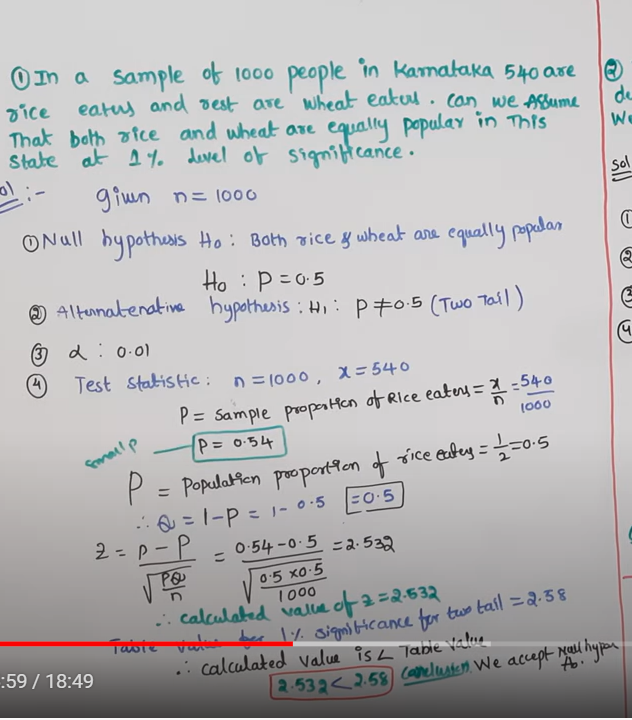 ① In a sample of 1000 people in Karnataka 540 are
rice eaters and rest are wheat eaters. can we Assume
That both rice and wheat are equally popular in This
State at 1% level of significance.
ol :- given n = 1000
① Null hypothesis H₀ : Both rice & wheat are equally popular
H₀ : P = 0.5
② Alternatenative hypothesis : H₁ : P ≠ 0.5 (Two Tail)
③ α : 0.01
④ Test Statistic : n = 1000, x = 540
P = Sample proportion of Rice eaters = x/n = 540/1000
small p P = 0.54
P = Population proportion of rice eaters = 1/2 = 0.5
∴ Q = 1 - P = 1 - 0.5 = 0.5
Z = p - P / √(PQ/n) = 0.54 - 0.5 / √(0.5 x 0.5 / 1000) = 2.532
∴ calculated value of z = 2.532
Table value for 1% significance for two tail = 2.58
∴ calculated value is < Table value
2.532 < 2.58 Conclusion We accept Null hypon H₀.
:59 / 18:49
②
de
We
Sol
①
②
③
④